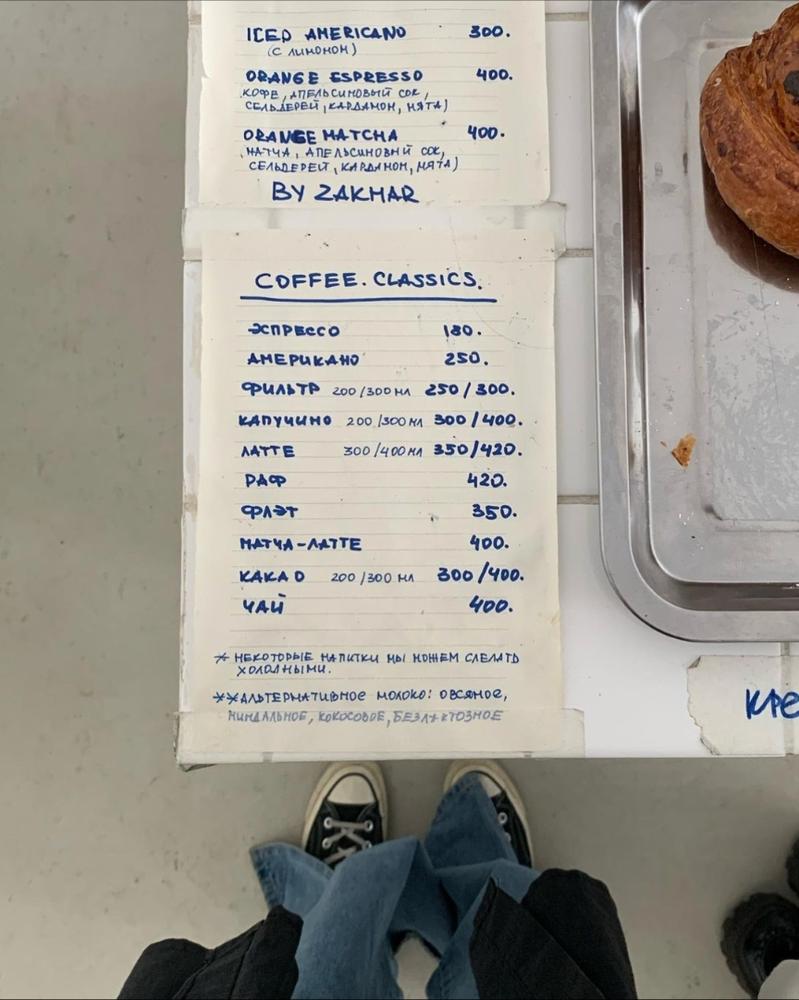 ICED AMERICANO 300.
(С ЛИМОНОМ)
ORANGE ESPRESSO 400.
(КОФЕ, АПЕЛЬСИНОВЫЙ СОК,
СЕЛЬДЕРЕЙ, КАРДАМОН, МЯТА)
ORANGE MATCHA 400.
(МАТЧА, АПЕЛЬСИНОВЫЙ СОК,
СЕЛЬДЕРЕЙ, КАРДАМОН, МЯТА)
BY ZAKHAR
COFFEE. CLASSICS.
ЭСПРЕССО 180.
АМЕРИКАНО 250.
ФИЛЬТР 200/300 МЛ 250/300.
КАПУЧИНО 200/300 МЛ 300/400.
ЛАТТЕ 300/400 МЛ 350/420.
РАФ 420.
ФЛЭТ 350.
МАТЧА-ЛАТТЕ 400.
КАКАО 200/300 МЛ 300/400.
ЧАЙ 400.
* НЕКОТОРЫЕ НАПИТКИ МЫ МОЖЕМ СДЕЛАТЬ
ХОЛОДНЫМИ.
**АЛЬТЕРНАТИВНОЕ МОЛОКО: ОВСЯНОЕ,
МИНДАЛЬНОЕ, КОКОСОВОЕ, БЕЗЛАКТОЗНОЕ